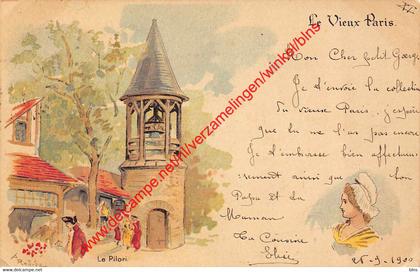 Le Vieux Paris.
Mon Cher petit George
Je t'envoie la collection
du vieux Paris, j'espère
que tu ne l'as pas encore
Je t'embrasse bien affectueu
sement ainsi que ton
Papa et ta
Maman
Ta Cousine
Elise
25-9-1900
Le Pilori
www.delcampe.net/verzamelingen/winkel/blns